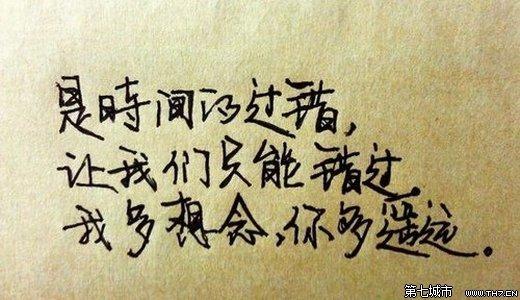 是時间的过错,
让我们只能错过.
我多想念,你多遥远.
第七城市 WWW.TH7.CN